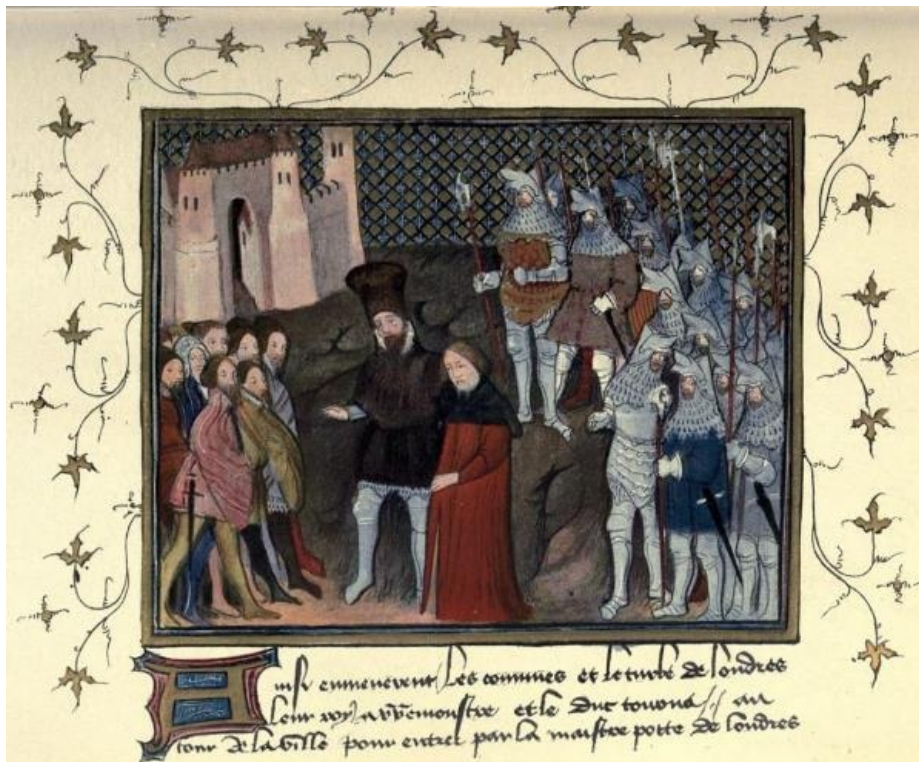 Ainsi enmenerent les communes et le turbe de londres
leur roy a wemonstre et le duc tourna // au
tour de la ville pour entrer par la maistre porte de londres